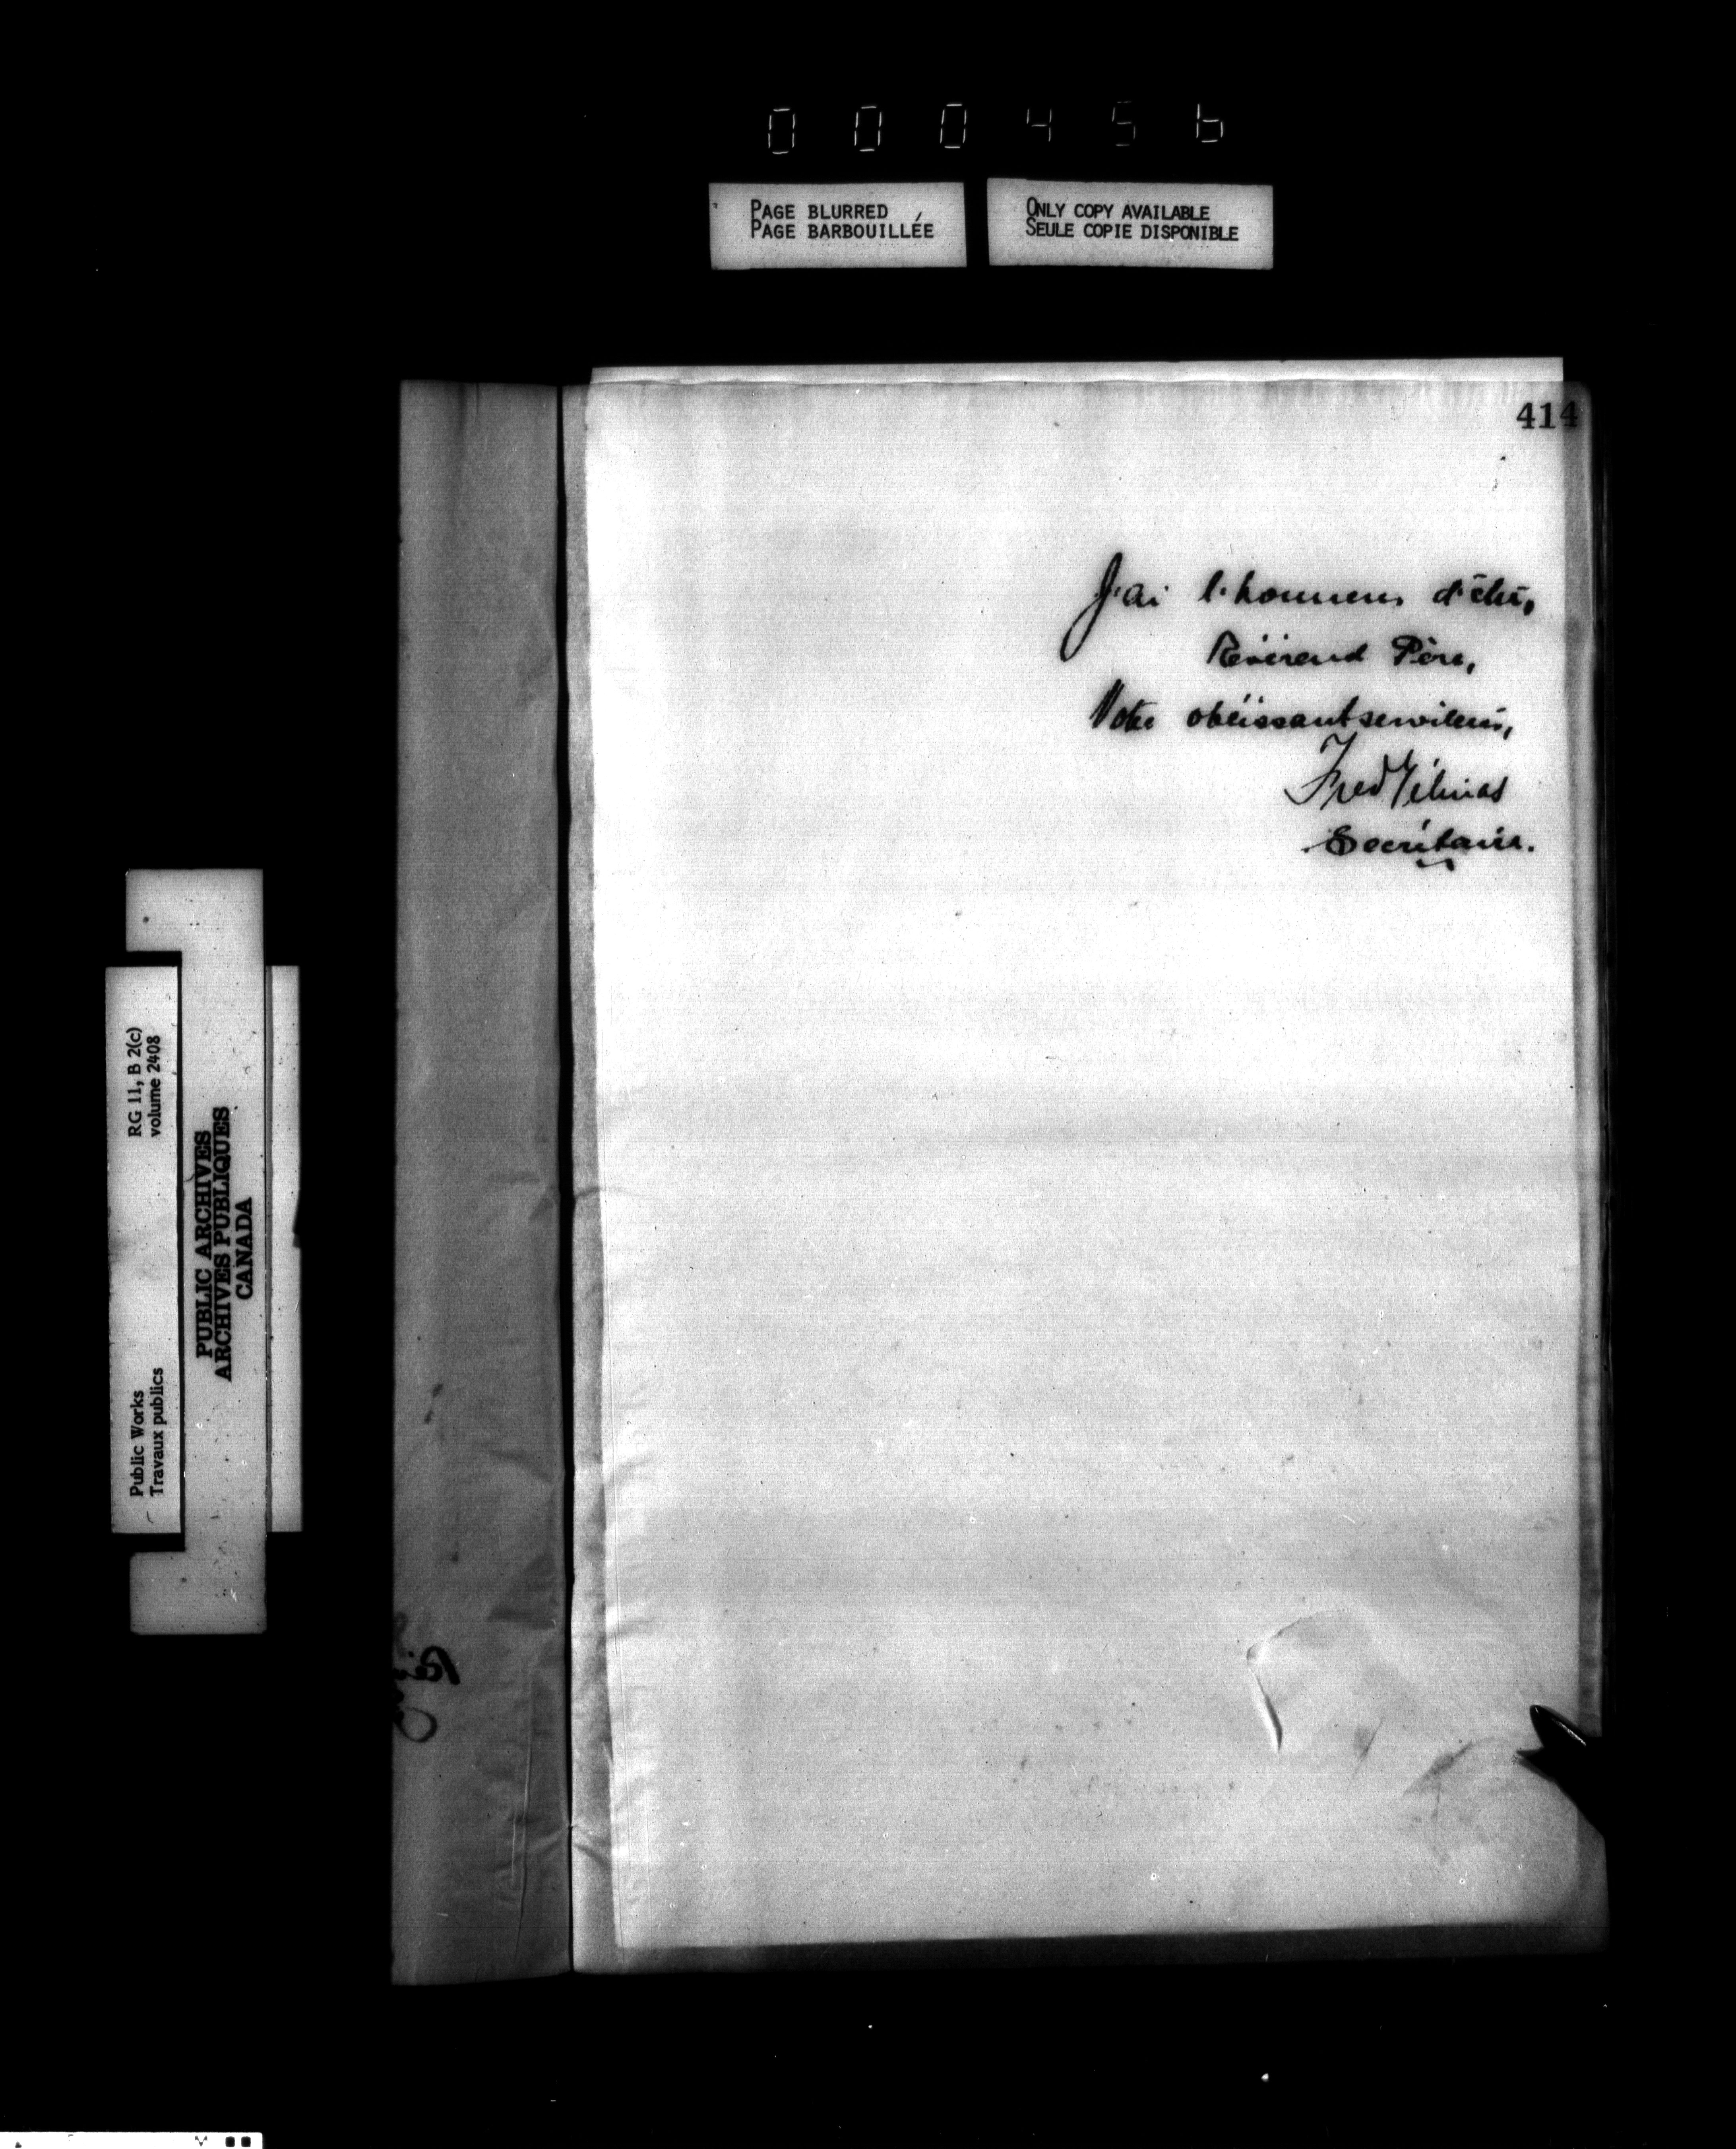 000456
PAGE BLURRED
PAGE BARBOUILLÉE
ONLY COPY AVAILABLE
SEULE COPIE DISPONIBLE
414
J'ai l'honneur d'être,
Révérend Père,
Votre obéissant serviteur,
Fred Gélinas
Secrétaire.
RG 11, B 2(c)
volume 2408
Public Works
Travaux publics
PUBLIC ARCHIVES
ARCHIVES PUBLIQUES
CANADA